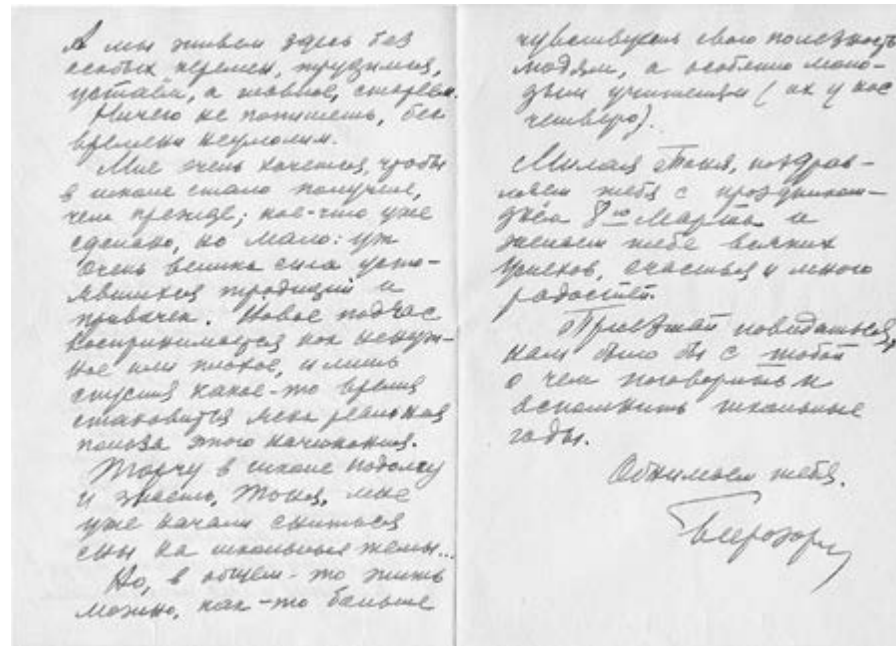 А мы живем здесь без
особых перемен, трудимся,
устаем, а главное, стареем.
Ничего не попишешь, бег
времени неумолим.
Мне очень хочется, чтобы
в школе стало получше,
чем прежде; кое-что уже
сделано, но мало: уж
очень велика сила усто-
явшихся традиций и
привычек. Новое подчас
воспринимается как ненуж-
ное или плохое, и лишь
спустя какое-то время
становится ясна реальная
польза этого начинания.
Торчу в школе подолгу
и знаешь, Тоня, мне
уже начали сниться
сны на школьные темы...
Но, в общем-то жить
можно, как-то больше
чувствуешь свою полезность
людям, а особенно моло-
дым учителям (их у нас
четверо).
Милая Тоня, поздрав-
ляем тебя с праздником
днём 8го Марта и
желаем тебе всяких
успехов, счастья и много
радостей.
Приезжай повидаться,
нам было бы с тобой
о чем поговорить и
вспомнить школьные
годы.
Обнимаем тебя.